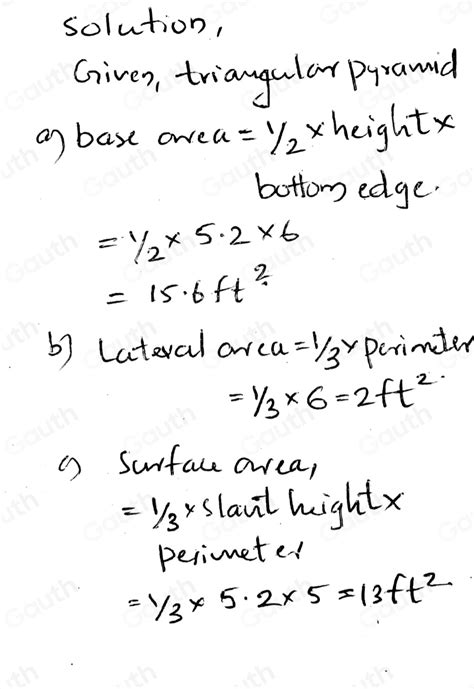 Solution,
Given, triangular pyramid
a) base area = 1/2 × height ×
bottom edge.
= 1/2 × 5.2 × 6
= 15.6 ft²
b) Lateral area = 1/3 × perimeter
= 1/3 × 6 = 2 ft².
c) Surface area,
= 1/3 × slant height ×
perimeter
= 1/3 × 5.2 × 5 = 13 ft²